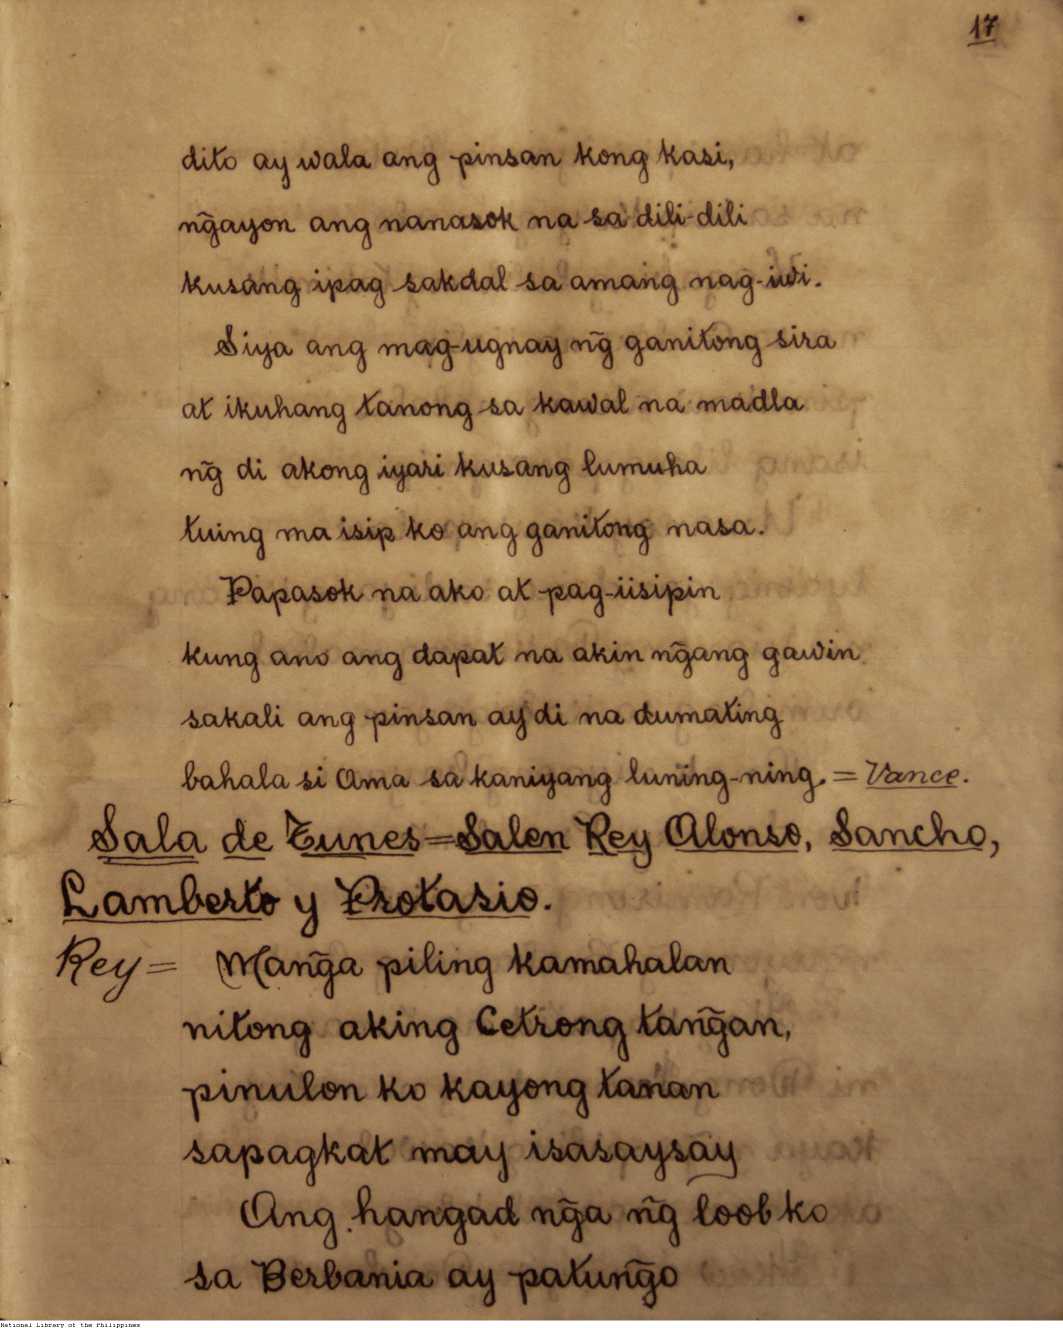 17
dito ay wala ang pinsan kong kasi,
ng̃ayon ang nanasok na sa dili-dili
kusang ipag sakdal sa amang nag-iwi.
Siya ang mag-ugnay ng̃ ganitong sira
at ikuhang tanong sa kawal na madla
ng̃ di akong iyari kusang lumuha
tuing ma isip ko ang ganitong nasa.
Papasok na ako at pag-iisipin
kung ano ang dapat na akin ng̃ang gawin
sakali ang pinsan ay di na dumating
bahala si Ama sa kaniyang luning-ning. = Vance.
Sala de Tunes = Salen Rey Alonso, Sancho,
Lamberto y Protasio.
Rey = Mang̃a piling kamahalan
nitong aking Cetrong tang̃an,
pinulon ko kayong tanan
sapagkat may isasaysay
Ang hangad ng̃a ng̃ loob ko
sa Berbania ay patung̃o
National Library of the Philippines